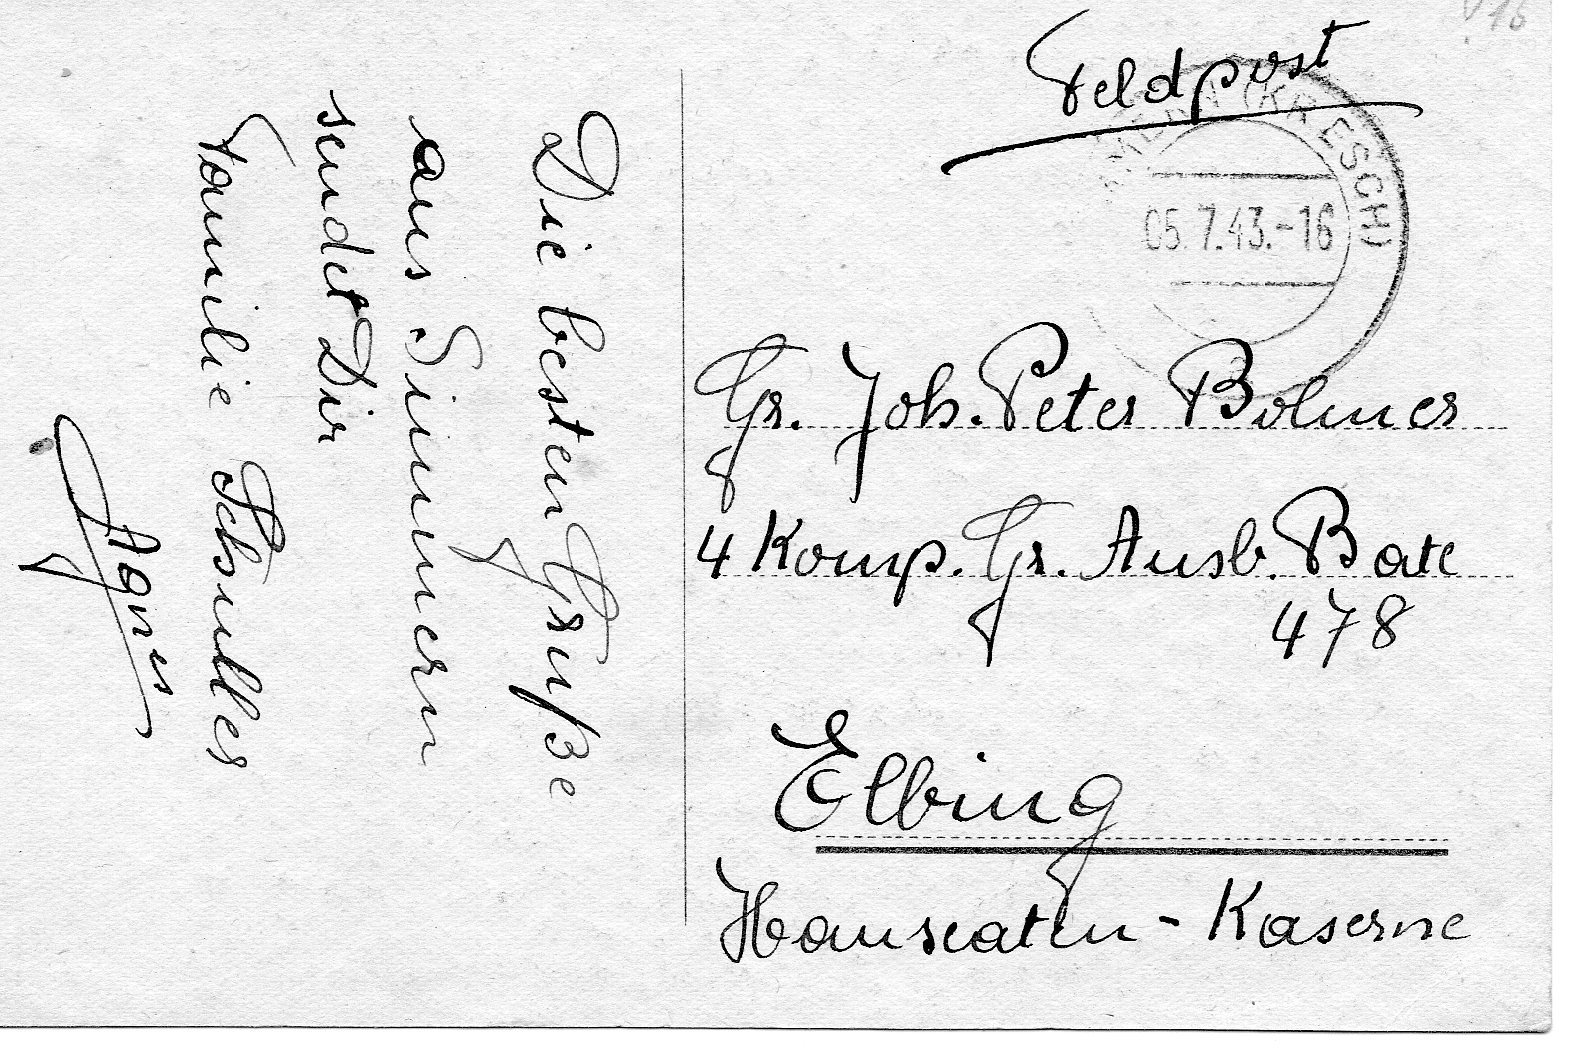 Feldpost
(KR ESCH)
05.7.43.-16
Gr. Joh. Peter Bolmer
4 Komp. Gr. Ausb. Batl
478
Elbing
Hanseaten-Kaserne
Die besten Gruße
aus Simmern
sendet Dir
Familie Schuller
Agnes